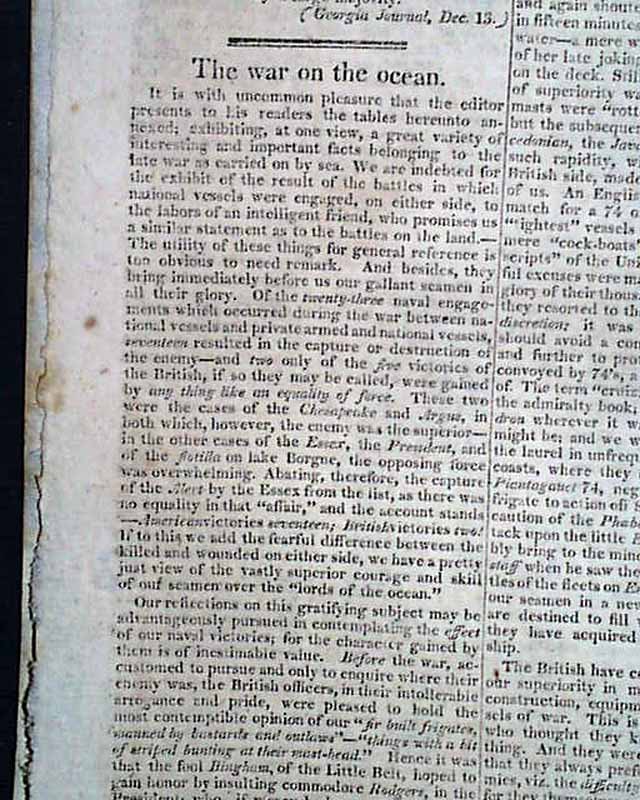 (Georgia Journal, Dec. 13.)
The war on the ocean.
It is with uncommon pleasure that the editor
presents to his readers the tables hereunto an-
nexed; exhibiting, at one view, a great variety of
interesting and important facts belonging to the
late war as carried on by sea. We are indebted for
the exhibit of the result of the battles in which
national vessels were engaged, on either side, to
the labors of an intelligent friend, who promises us
a similar statement as to the battles on the land.—
The utility of these things for general reference is
too obvious to need remark. And besides, they
bring immediately before us our gallant seamen in
all their glory. Of the twenty-three naval engage-
ments which occurred during the war between na-
tional vessels and private armed and national vessels,
seventeen resulted in the capture or destruction of
the enemy—and two only of the five victories of
the British, if so they may be called, were gained
by any thing like an equality of force. These two
were the cases of the Chesapeake and Argus, in
both which, however, the enemy was the superior—
in the other cases of the Essex, the President, and
of the flotilla on lake Borgne, the opposing force
was overwhelming. Abating, therefore, the capture
of the Alert by the Essex from the list, as there was
no equality in that "affair," and the account stands
—American victories seventeen; British victories two!
If to this we add the fearful difference between the
killed and wounded on either side, we have a pretty
just view of the vastly superior courage and skill
of our seamen over the "lords of the ocean."
Our reflections on this gratifying subject may be
advantageously pursued in contemplating the effect
of our naval victories; for the character gained by
them is of inestimable value. Before the war, ac-
customed to pursue and only to enquire where their
enemy was, the British officers, in their intolerable
arrogance and pride, were pleased to hold the
most contemptible opinion of our "fir built frigates,
manned by bastards and outlaws"—"things with a bit
of striped bunting at their mast-head." Hence it was
that the fool Bingham, of the Little Belt, hoped to
gain honor by insulting commodore Rodgers, in the
and again
in fifteen minutes
water—a mere
of her late
on the deck.
of superiority
masts were
but the subsequent
cedonian, the Java
such rapidity,
British side, made
of us. An
match for a 74
vessels
mere "cock-boats
of the
ful excuses were
glory of their
they resorted to
discretion; it was
should avoid a
and further to
convoyed by 74's, a
of. The term
the admiralty book,
dron wherever it
might be; and we
the laurel in
coasts, where they
74,
frigate to action off
caution of the
tack upon the little
bly bring to the
staff when he saw the
tles of the fleets on
our seamen in a
are destined to fill
they have acquired
ship.
The British have
our superiority in
construction,
sels of war. This is
who thought they
thing. And they were
that they always
mies, viz. the
for they